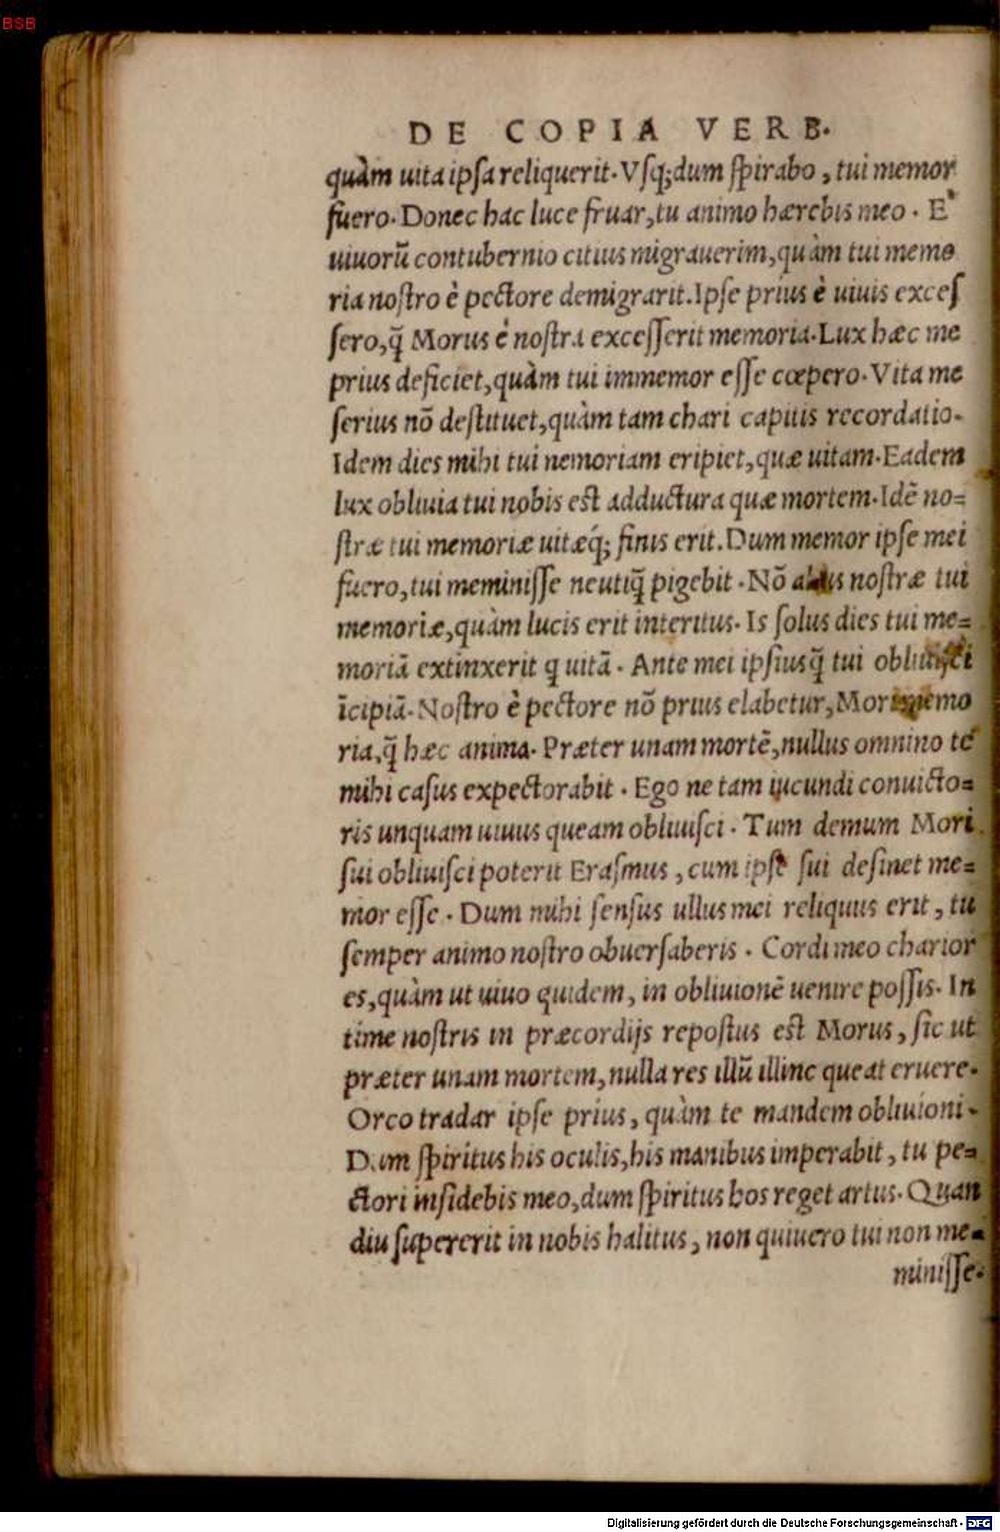 BSB
DE COPIA VERB.
quàm uita ipſa reliquerit. Vſq; dum ſpirabo, tui memor
fuero. Donec hac luce fruar, tu animo hærebis meo. E'
uiuorũ contubernio citius migrauerim, quàm tui memo
ria noſtro è pectore demigrarit. Ipſe prius è uiuis exceſ
ſero, q̃ Morus è noſtra exceſſerit memoria. Lux hæc me
prius deficiet, quàm tui immemor eſſe cœpero. Vita me
ſerius nõ deſtituet, quàm tam chari capitis recordatio.
Idem dies mihi tui nemoriam eripiet, quæ uitam. Eadem
lux obliuia tui nobis eſt adductura quæ mortem. Idẽ no=
ſtræ tui memoriæ uitæq́; finis erit. Dum memor ipſe mei
fuero, tui meminiſſe neutiq̃ pigebit. Nõ noſtræ tui
memoriæ, quàm lucis erit interitus. Is ſolus dies tui me=
moriã extinxerit q uitã. Ante mei ipſiusq̃ tui obliuiſci
ĩcipiã. Noſtro è pectore nõ prius elabetur, Mori memo
ria, q̃ hæc anima. Præter unam mortẽ, nullus omnino te
mihi caſus expectorabit. Ego ne tam iucundi conuicto=
ris unquam uiuus queam obliuiſci. Tum demum Mori
ſui obliuiſci poterit Eraſmus, cum ipſe ſui deſinet me=
mor eſſe. Dum mihi ſenſus ullus mei reliquus erit, tu
ſemper animo noſtro obuerſaberis. Cordi meo charior
es, quàm ut uiuo quidem, in obliuionẽ uenire poſſis. In
time noſtris in præcordijs repoſtus eſt Morus, ſic ut
præter unam mortem, nulla res illũ illinc queat eruere.
Orco tradar ipſe prius, quàm te mandem obliuioni.
Dum ſpiritus his oculis, his manibus imperabit, tu pe=
ctori inſidebis meo, dum ſpiritus hos reget artus. Quan
diu ſupererit in nobis halitus, non quiuero tui non me=
miniſſe.
Digitalisierung gefördert durch die Deutsche Forschungsgemeinschaft - DFG